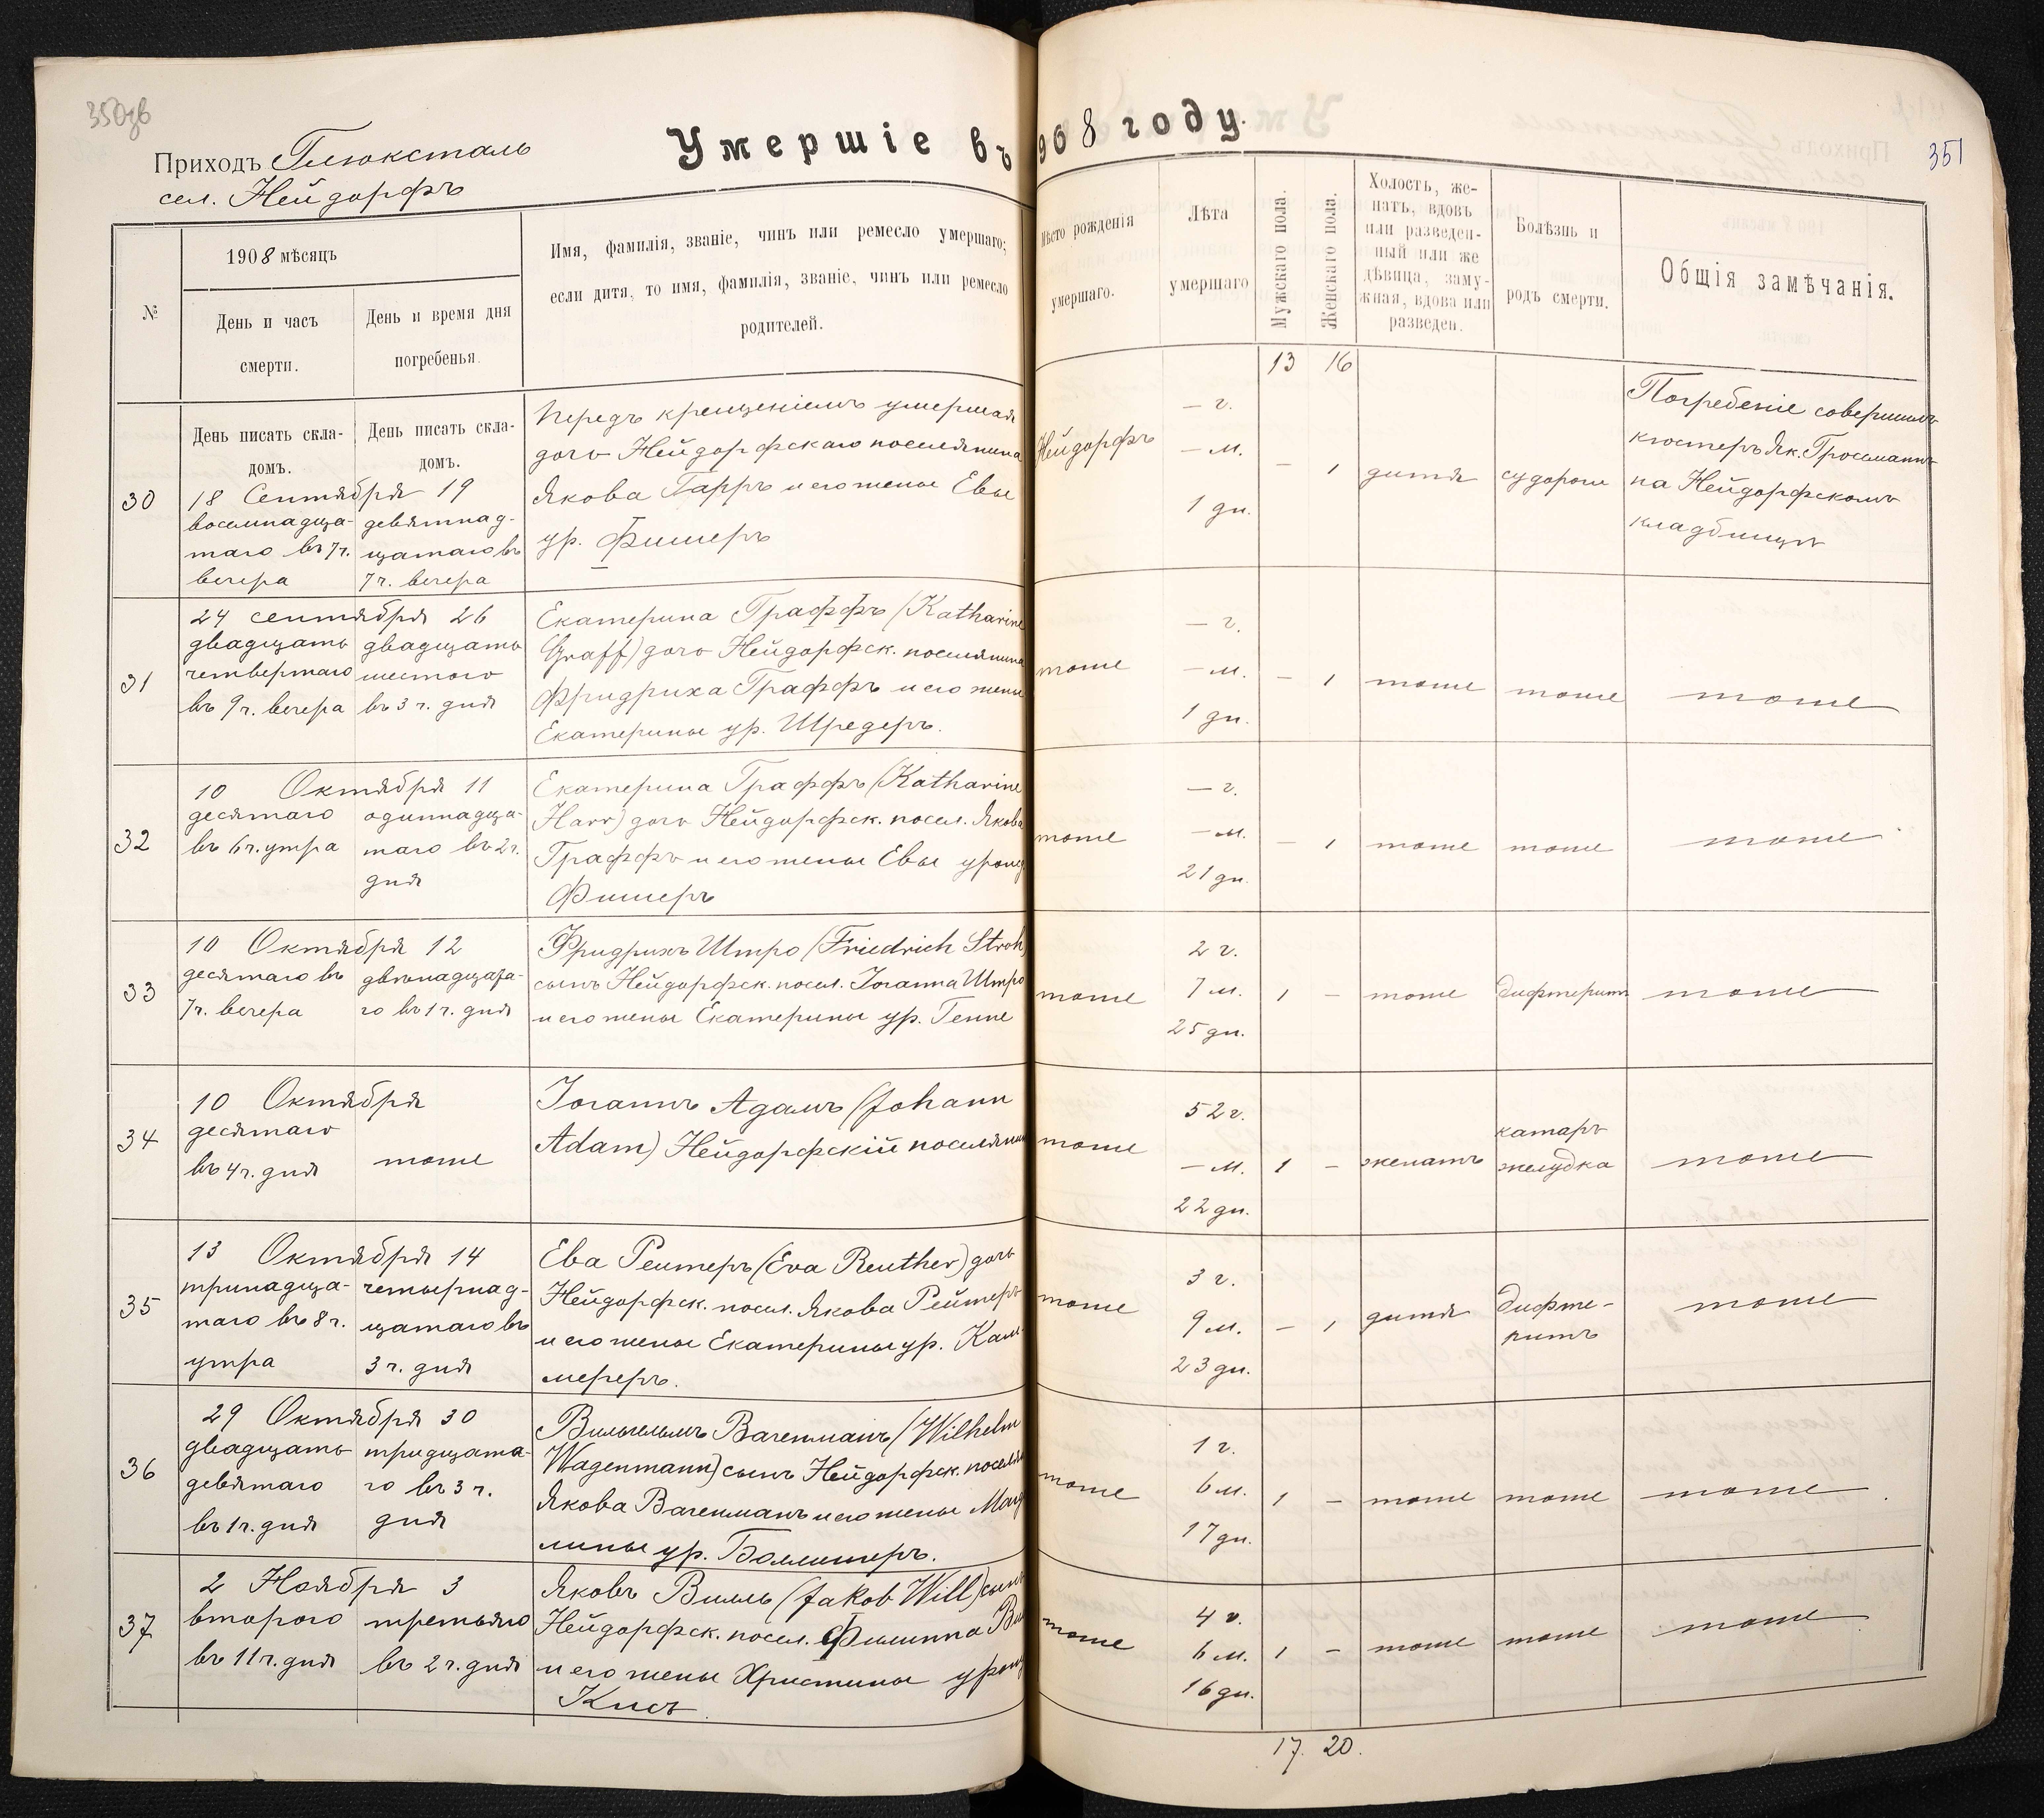 350об
351
Приходъ Глюксталь
сел. Нейдорфъ
Умершіе въ 908 году.
№
1908 мѣсяцъ
День и часъ
смерти.
День и время дня
погребенья.
Имя, фамилія, званіе, чинъ или ремесло умершаго;
если дитя, то имя, фамилія, званіе, чинъ или ремесло
родителей.
Мѣсто рожденія
умершаго.
Лѣта
умершаго
Мужскаго пола.
Женскаго пола.
Холостъ, же-
натъ, вдовъ
или разведен-
ный или же
дѣвица, заму-
жняя, вдова или
разведен.
Болѣзнь и
родъ смерти.
Общія замѣчанія.
13 16
День писать скла-
домъ.
День писать скла-
домъ.
30
18 Сентября 19
восемнадца-
таго въ 7 ч.
вечера
девятнад-
цатаго въ
7 ч. вечера
Передъ крещеніемъ умершая
дочь Нейдорфскаго поселянина
Якова Гарръ и его жены Евы
ур. Фишеръ
Нейдорфъ
— г.
— м.
1 дн.
— 1
дитя
судороги
Погребеніе совершилъ
кюстеръ Як. Гроссманнъ
на Нейдорфскомъ
кладбищѣ
31
24 сентября 26
двадцать
четвертаго
въ 9 ч. вечера
двадцать
шестого
въ 3 ч. дня
Екатерина Граффъ (Katharine
Graff) дочь Нейдорфск. поселянина
Фридриха Граффъ и его жены
Екатерины ур. Шредеръ.
тоже
— г.
— м.
1 дн.
— 1
тоже
тоже
тоже
32
10 Октября 11
десятаго
въ 6 ч. утра
одиннадца-
таго въ 2 ч.
дня
Екатерина Граффъ (Katharine
Harr) дочь Нейдорфск. посел. Якова
Граффъ и его жены Евы урожд.
Фишеръ
тоже
— г.
— м.
21 дн.
— 1
тоже
тоже
тоже
33
10 Октября 12
десятаго въ
7 ч. вечера
двѣнадцата-
го въ 1 ч. дня
Фридрихъ Штро (Friedrich Stroh)
сынъ Нейдорфск. посел. Іоганна Штро
и его жены Екатерины ур. Генне
тоже
2 г.
7 м.
25 дн.
1 —
тоже
дифтеритъ
тоже
34
10 Октября
десятаго
въ 4 ч. дня
тоже
Іоганнъ Адамъ (Johann
Adam) Нейдорфскій поселянин
тоже
52 г.
— м.
22 дн.
1 —
женатъ
катаръ
желудка
тоже
35
13 Октября 14
тринадца-
таго въ 8 ч.
утра
четырнад-
цатаго въ
3 ч. дня
Ева Рейтеръ (Eva Reuther) дочь
Нейдорфск. посел. Якова Рейтеръ
и его жены Екатерины ур. Кам-
мереръ.
тоже
3 г.
9 м.
23 дн.
— 1
дитя
дифте-
ритъ
тоже
36
29 Октября 30
двадцать
девятаго
въ 1 ч. дня
тридцата-
го въ 3 ч.
дня
Вильгельмъ Вагенманъ (Wilhelm
Wagenmann) сынъ Нейдорфск. поселян
Якова Вагенманъ и его жены Магд
лины ур. Боллингеръ.
тоже
1 г.
6 м.
17 дн.
1 —
тоже
тоже
тоже
37
2 Ноября 3
второго
въ 11 ч. дня
третьяго
въ 2 ч. дня
Яковъ Вилль (Jakob Will) сынъ
Нейдорфск. посел. Филиппа Ви
и его жены Христины урожд
Кисъ.
тоже
4 г.
6 м.
16 дн.
1 —
тоже
тоже
тоже
17. 20.